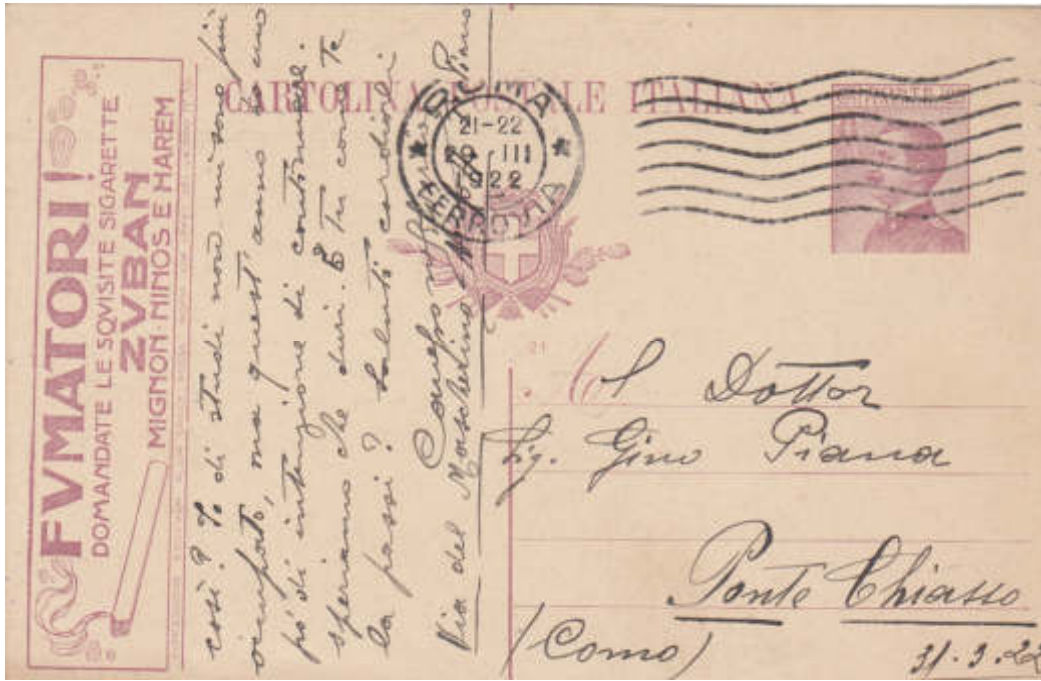 FVMATORI!
DOMANDATE LE SQVISITE SIGARETTE
ZVBAN
MIGNON-MINOS E HAREM
così? Io di studi non mi sono più
occupato, ma quest'anno ho un
po' di intenzione di continuare;
speriamo che duri. E tu come te
la passi? Saluti cordiali
Via del Mascherino
CARTOLINA POSTALE ITALIANA
ROMA
21-22
29 III
922
FERROVIA
21
Al Dottor
Sig. Gino Piana
Ponte Chiasso
(Como)
31.3.22